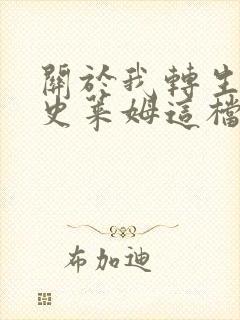 關於我轉生
史萊姆這檔
布加迪